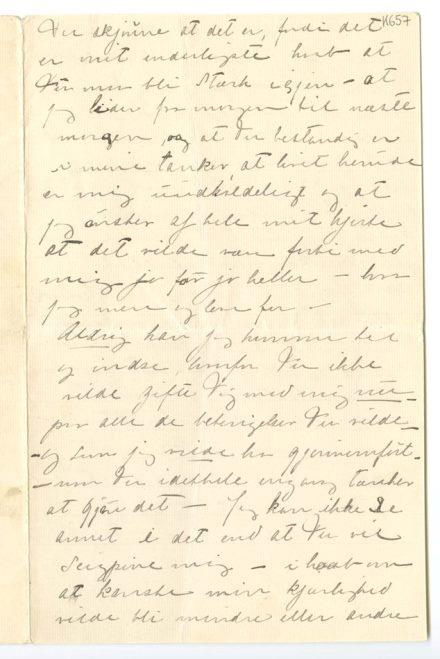 K657
Du skjønne at det er, fordi det
er mit inderligste haab at
Du maa bli stærk igjen – at
jeg lider fra morgen til næste
morgen, og at Du bestandig er
i mine tanker, at livet herinde
er mig uudholdeligt og at
jeg ønsker af hele mit hjerte
at det vilde være forbi med
mig jo før jo heller – hva
jeg mere og leve for –
Aldrig kan jeg komme til
og indse, hvorfor Du ikke
vilde gifte Dig med mig nu –
paa alle de betingelser Du vilde –
– og som jeg vilde ha gjennemført –
– naar Du idethele engang tænker
at gjøre det – Jeg kan ikke se
annet i det end at Du vil
seigpine mig – i haab om
at kanske min kjærlighed
vilde bli mindre eller andre